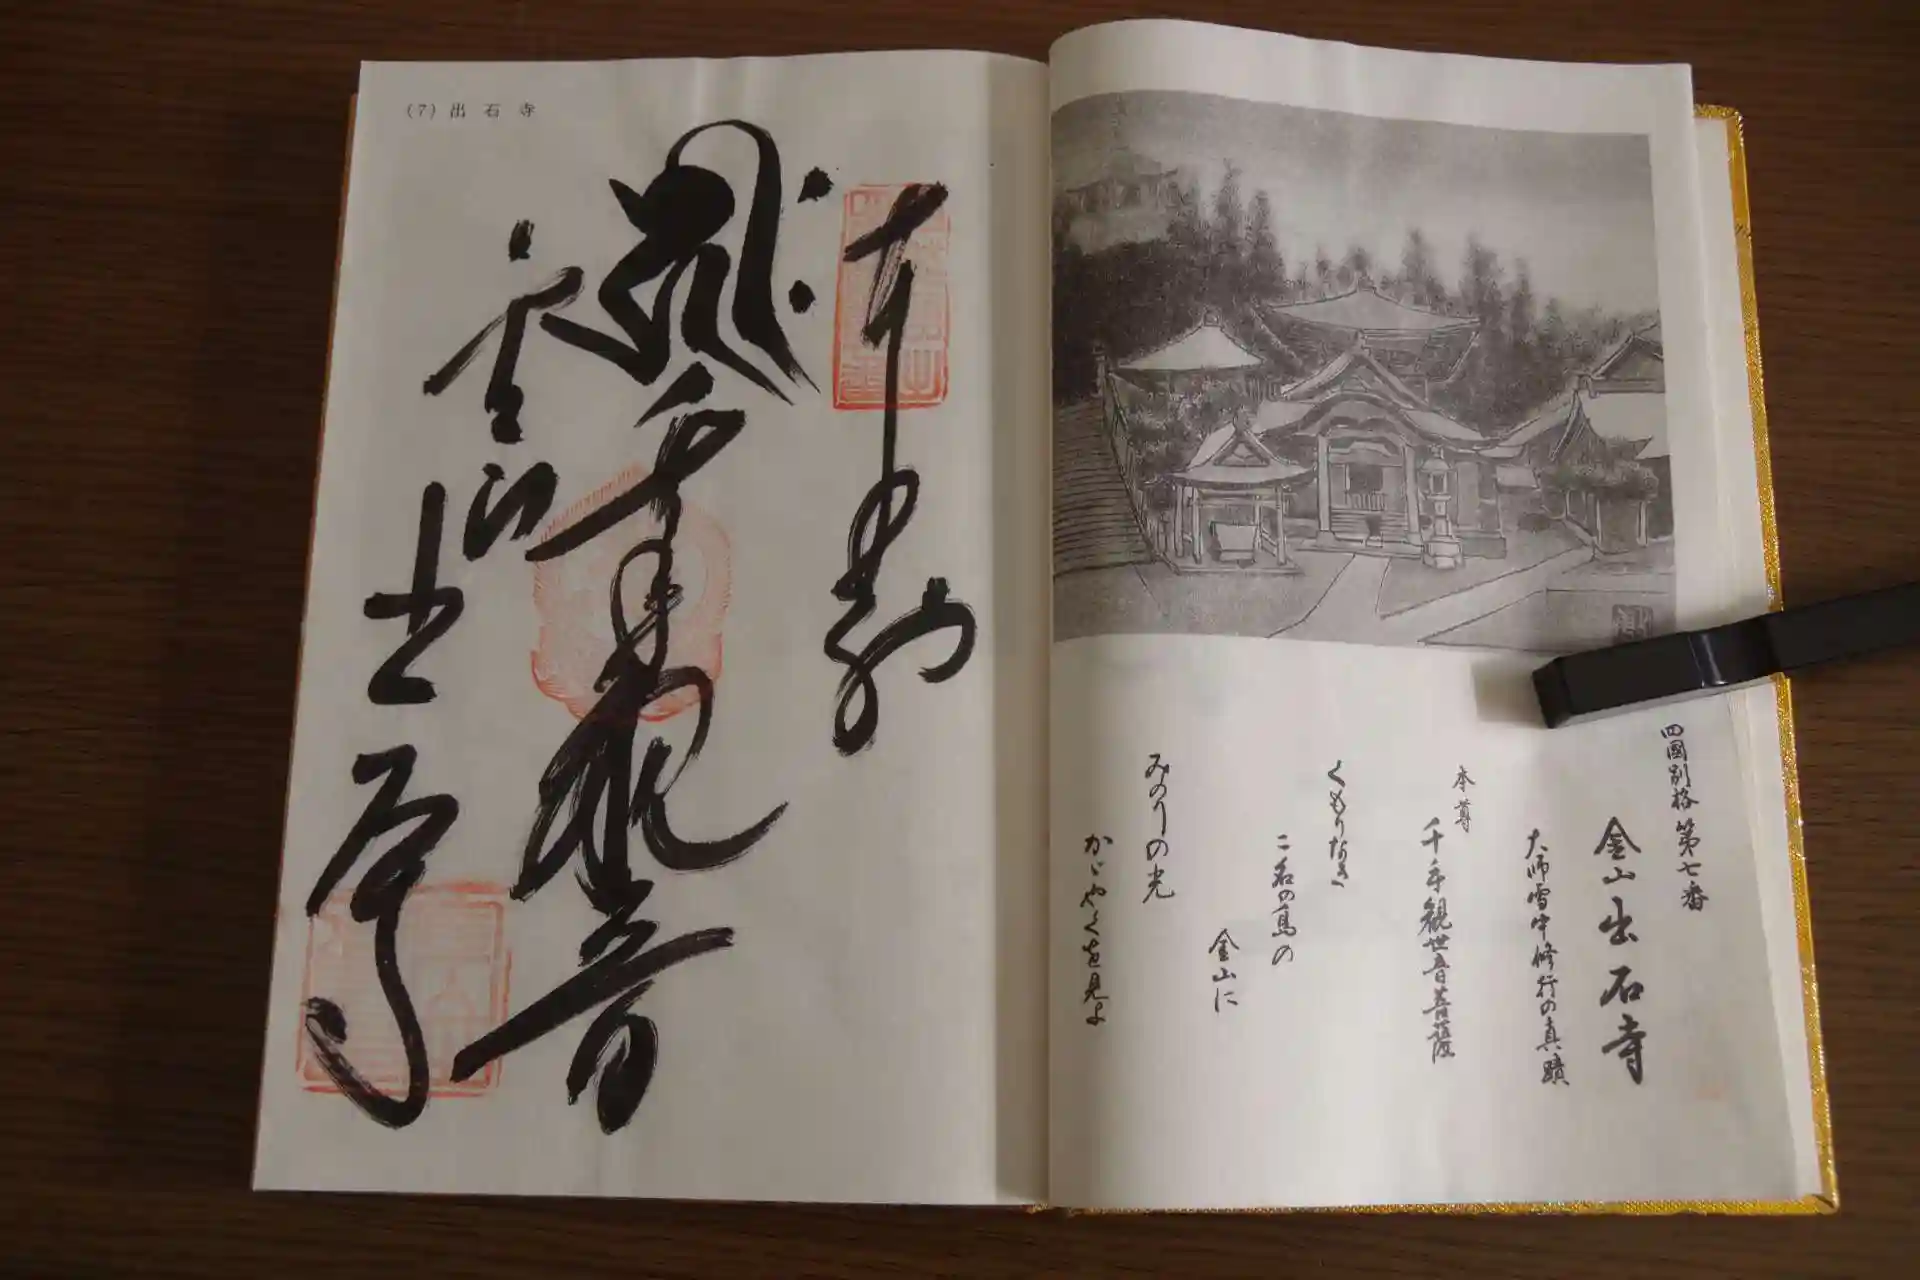 四國別格 第七番
金山出石寺
大師雪中修行の真蹟
本尊
千手観世音菩薩
くもりなき
二名の島の
金山に
みのりの光
かゞやくを見よ
(7) 出石寺
奉納
千手観音
金山
出石寺